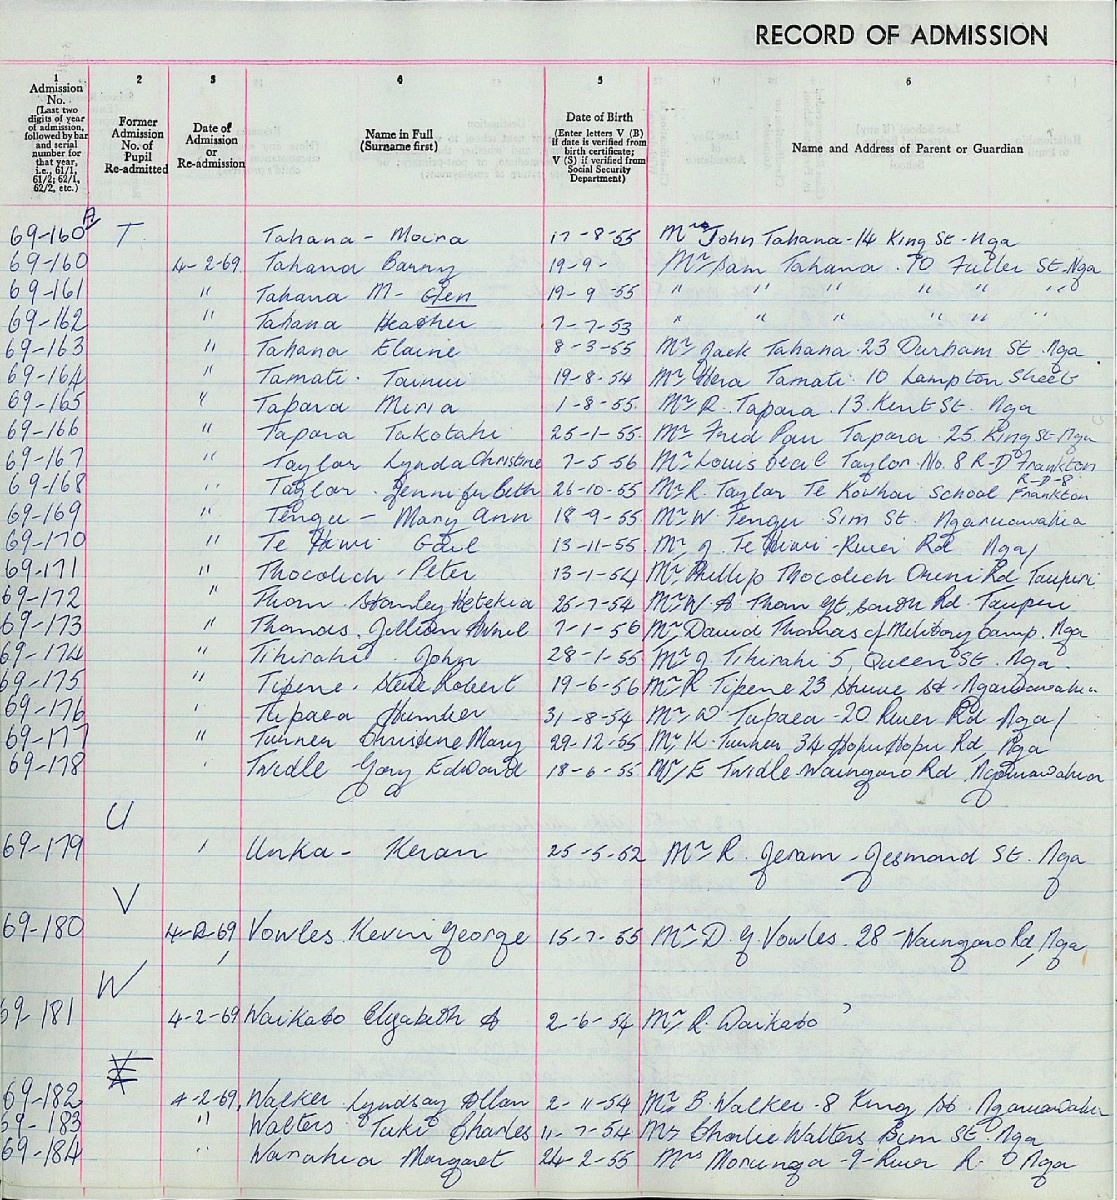 RECORD OF ADMISSION
1 2 3 4 5 6
Admission No. (Last two digits of year of admission, followed by bar and serial number for that year, i.e., 61/1, 61/2; 62/1, 62/2, etc.)
Former Admission No. of Pupil Re-admitted
Date of Admission or Re-admission
Name in Full (Surname first)
Date of Birth (Enter letters V (B) if date is verified from birth certificate; V (S) if verified from Social Security Department)
Name and Address of Parent or Guardian
69-160A T Tahana - Moira 17-8-55 John Tahana-14 King St-Nga
69-160 4-2-69 Tahana Barry 19-9- Mr Sam Tahana. 70 Fuller St. Nga
69-161 " Tahana M- Glen 19-9-55 " " " " " "
69-162 " Tahana Heather 7-7-53 " " " " " "
69-163 " Tahana Elaine 8-3-55 Mr Jack Tahana. 23 Durham St Nga
69-164 " Tamati. Tainui 19-8-54 Mr Hera Tamati. 10 Lampton Street
69-165 " Tapara Miria 1-8-55. Mr R. Tapara .13. Kent St. Nga
69-166 " Tapara Takotahi 25-1-55. Mr Fred Tapara. 25. King St Nga
69-167 " Taylor Lynda Christine 7-5-56 Mr Louis Taylor No. 8 R-D Frankton
69-168 " Taylor. Jennifer Beth 26-10-55 Mr R. Taylor Te Kowhai School R-D-8. Frankton
69-169 " Tengu - Mary Ann 18-9-55 Mr W. Tengu Sim St. Ngaruawahia
69-170 " Te Hiwi Gail 13-11-55 Mr J. Te Hiwi-River Rd Nga/
69-171 " Thocolich-Peter 13-1-54 Mr Phillip Thocolich Rd Taupiri
69-172 " Thom. Stanley 25-7-54 Mr W A Thom Gt. South Rd. Taupiri
69-173 " Thomas. Gillian 7-1-56 Mr David Thomas Military Camp. Nga
69-174 " Tihirahi. John 28-1-55 Mr J Tihirahi 5, Queen St. Nga.
69-175 " Tipene. Steve Robert 19-6-56 Mr R Tipene 23 St. Ngaruawahia
69-176 ' Tupaea Humber 31-8-54 Mr W Tupaea -20 River Rd Nga/
69-177 " Turner Christine Mary 29-12-55 Mr K. Turner 34 HopuHopu Rd, Nga
69-178 Twidle Gary Edward 18-6-55 E Twidle Waingaro Rd. Ngaruawahia
U
69-179 ' Unka - Keran 25-5-52 Mr R. Jeram - Jesmond St. Nga
V
69-180 4-2-69 Vowles Kevin George 15-7-55 Mr D. G. Vowles. 28 Waingaro Rd, Nga
W
69-181 4-2-69 Waikato Elizabeth A 2-6-54 Mr R. Waikato ?
69-182 4-2-69. Walker Lyndsay Allan 2-11-54 Mr B. Walker. 8 King St. Ngaruawahia
69-183 " Walters Tuki Charles 11-7-54 Mr Charlie Walters St. Nga
69-184 " Warahia Margaret 24-2-55 Mrs Morunga -9-River R. Nga